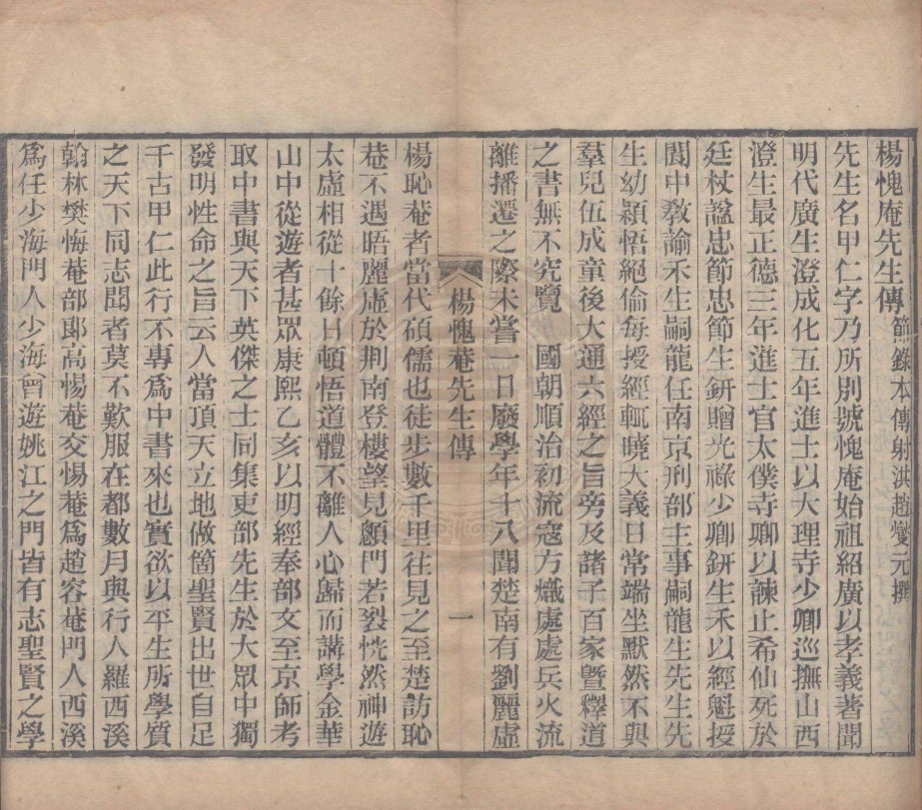 楊愧庵先生傳 節錄本傳射洪趙燮元撰
先生名甲仁字乃所別號愧庵始祖紹廣以孝義著聞
明代廣生澄成化五年進士以大理寺少卿巡撫山西
澄生最正德三年進士官太僕寺卿以諫止希仙死於
廷杖諡忠節忠節生鈃贈光祿少卿鈃生禾以經魁授
閬中敎諭禾生嗣龍任南京刑部主事嗣龍生先生先
生幼穎悟絕倫每授經輒曉大義日常端坐默然不與
羣兒伍成童後大通六經之旨旁及諸子百家曁釋道
之書無不究覽 國朝順治初流寇方熾處處兵火流
離播遷之際未嘗一日廢學年十八聞楚南有劉麗虛
楊愧菴先生傳 一
楊恥菴者當代碩儒也徒步數千里往見之至楚訪恥
菴不遇晤麗虛於荆南登樓望見顱門若裂恍然神遊
太虛相從十餘日頓悟道體不離人心歸而講學金華
山中從遊者甚眾康熙乙亥以明經奉部文至京師考
取中書與天下英傑之士同集吏部先生於大眾中獨
發明性命之旨云人當頂天立地做箇聖賢出世自足
千古甲仁此行不專爲中書來也實欲以平生所學質
之天下同志聞者莫不歎服在都數月與行人羅西溪
翰林樊悔菴部郞高惕菴交惕菴爲趙容菴門人西溪
爲任少海門人少海曾遊姚江之門皆有志聖賢之學